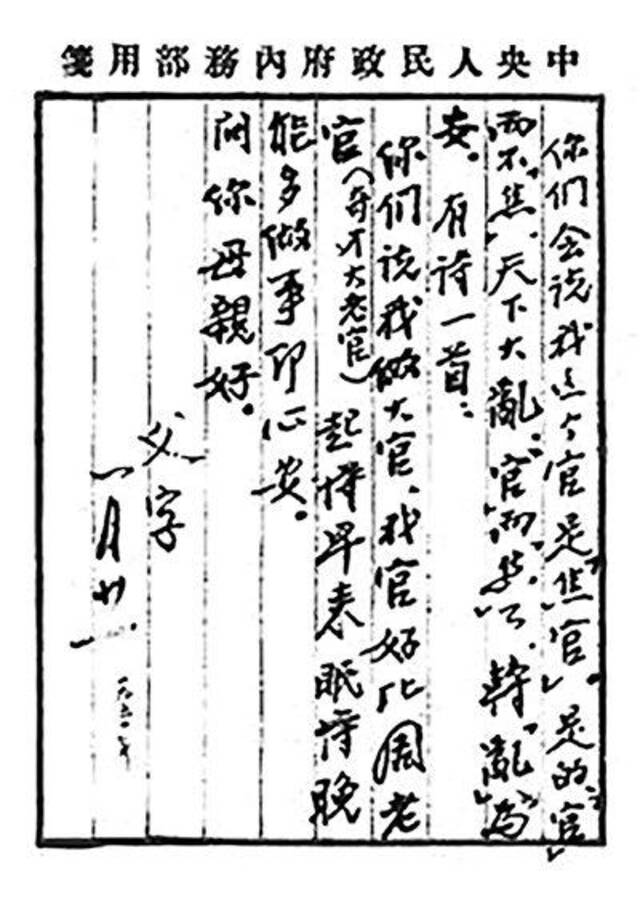 中央人民政府內務部用箋
你们会说我这个官是“焦官”。是的“官”
而不“焦”,天下大亂,“官”而“焦”了,转“亂”为
安。有诗一首:
你们说我做大官,我官好比周老
官(奇才大老官)起得早来眠得晚
能多做事即心安。
问你母親好。
父字
一月廿一
一九五〇年